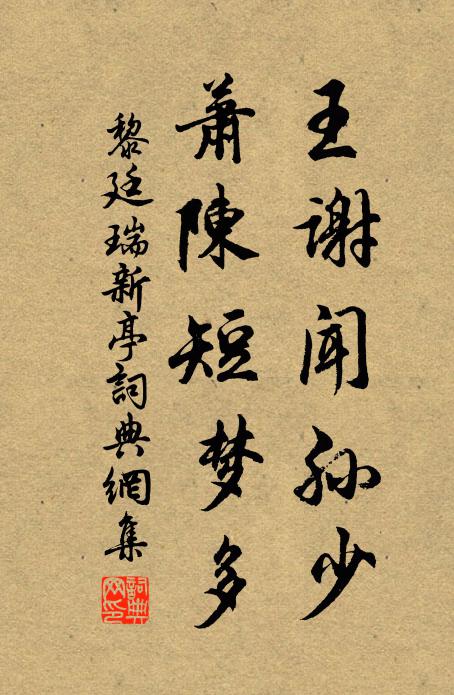 王谢闻孙少
萧陳短梦多
黎廷瑞新亭詞典網集
詞典网印